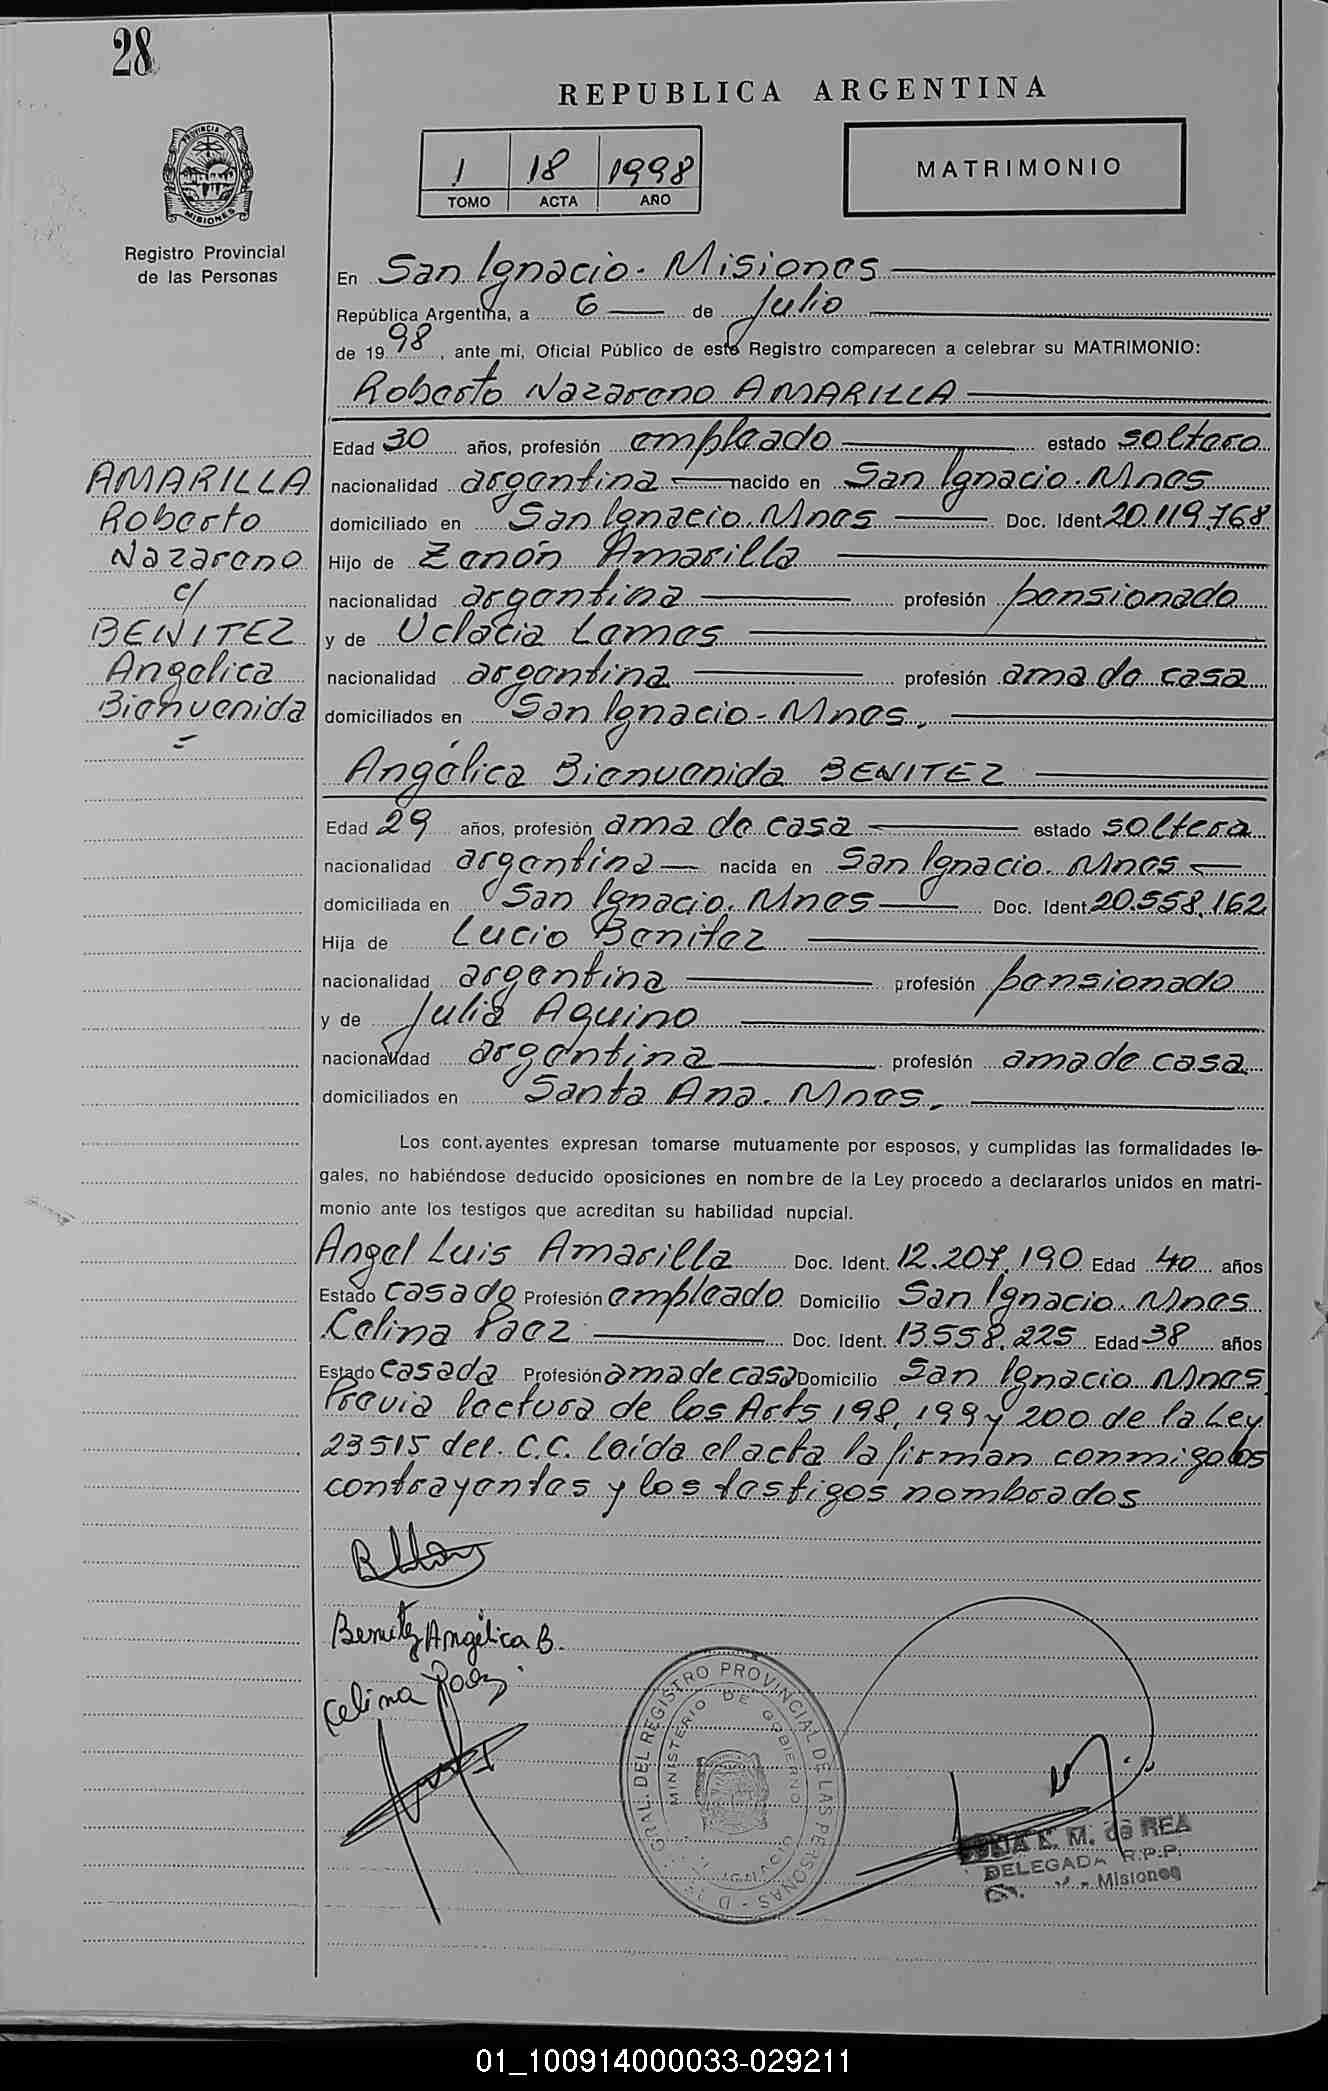 28
REPUBLICA ARGENTINA
PROVINCIA DE
MISIONES
1 18 1998
TOMO ACTA AÑO
MATRIMONIO
Registro Provincial
de las Personas
En San Ignacio - Misiones
República Argentina, a 6 de Julio
de 1998, ante mí, Oficial Público de este Registro comparecen a celebrar su MATRIMONIO:
Roberto Nazareno AMARILLA
Edad 30 años, profesión empleado estado soltero
AMARILLA
nacionalidad argentina nacido en San Ignacio. Mnes
Roberto
domiciliado en San Ignacio. Mnes Doc. Ident. 20.119.768
Nazareno
Hijo de Zenón Amarilla
c/
nacionalidad argentina profesión pensionado
BENITEZ
y de Lemes
Angelica
nacionalidad argentina profesión ama de casa
Bienvenida
domiciliados en San Ignacio - Mnes.
Angélica Bienvenida BENITEZ
Edad 29 años, profesión ama de casa estado soltera
nacionalidad argentina nacida en San Ignacio. Mnes
domiciliada en San Ignacio. Mnes Doc. Ident. 20.558.162
Hija de Lucio Benitez
nacionalidad argentina profesión pensionado
y de Julia Aquino
nacionalidad argentina profesión ama de casa
domiciliados en Santa Ana. Mnes.
Los cont.ayentes expresan tomarse mutuamente por esposos, y cumplidas las formalidades le-
gales, no habiéndose deducido oposiciones en nombre de la Ley procedo a declararlos unidos en matri-
monio ante los testigos que acreditan su habilidad nupcial.
Angel Luis Amarilla Doc. Ident. 12.207.190 Edad 40 años
Estado casado Profesión empleado Domicilio San Ignacio. Mnes
Celina Paez Doc. Ident. 13.558.225 Edad 38 años
Estado casada Profesión ama de casa Domicilio San Ignacio Mnes
Previa lectura de los Arts 198, 199 y 200 de la Ley
23515 del. C.C. Leída el acta la firman conmigo los
contrayentes y los testigos nombrados
Benitez Angélica B.
Celina Paez
GRAL. DEL REGISTRO PROVINCIAL DE LAS PERSONAS
MINISTERIO DE GOBIERNO
M. de REA
DELEGADA R.P.P.
- Misiones
01_100914000033-029211